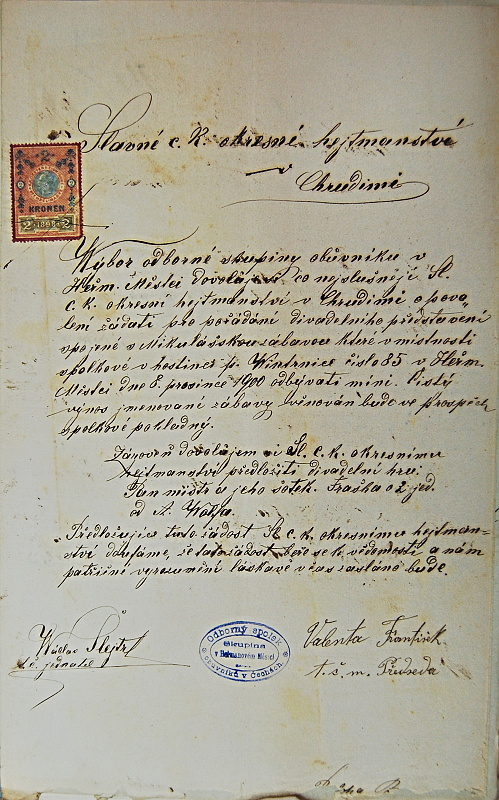 Slavné c. k. okresní hejtmanství
v
Chrudimi
2
KRONEN
2 1898 2
Výbor odborné skupiny obuvníku v
Heřm. Městci dovolují si co nejslušněji Sl.
c. k. okresní hejtmanství v Chrudimi o povo-
lení žádati pro pořádání divadelního představení
spojené s Mikulášskou zábavou které v místnosti
spolkové v hostinci p. Wintrnice číslo 85 v Heřm.
Městci dne 8. prosince 1900 odbývati míní. Čistý
výnos jmenované zábavy věnován bude ve prospěch
spolkové pokladny.
Zároveň dovolujem si Sl. c. k. okresnímu
hejtmanství předložiti divadelní hru:
Pan mistr a jeho šotek. Fraška o 2 jed.
od A.
Předložujíc tuto žádost Sl. c. k. okresnímu hejtman-
ství doufáme, že tato žádost béře se k vědomosti a nám
patřičné vyrozumění láskavě včas zasláno bude.
Václav Šlejtr
t. č. jednatel
Odborný spolek
Skupina
v Heřmanovém Městci
obuvníků v Čechách
Valenta František
t. č. m. Předseda